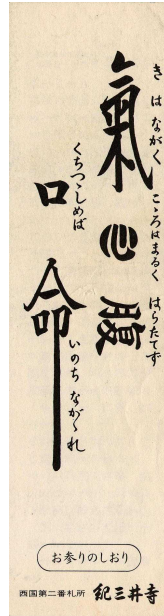 きはながく こころはまるく はらたてず
氣心腹
くちつゝしめば いのちながゝれ
口命
お参りのしおり
西国第二番札所 紀三井寺